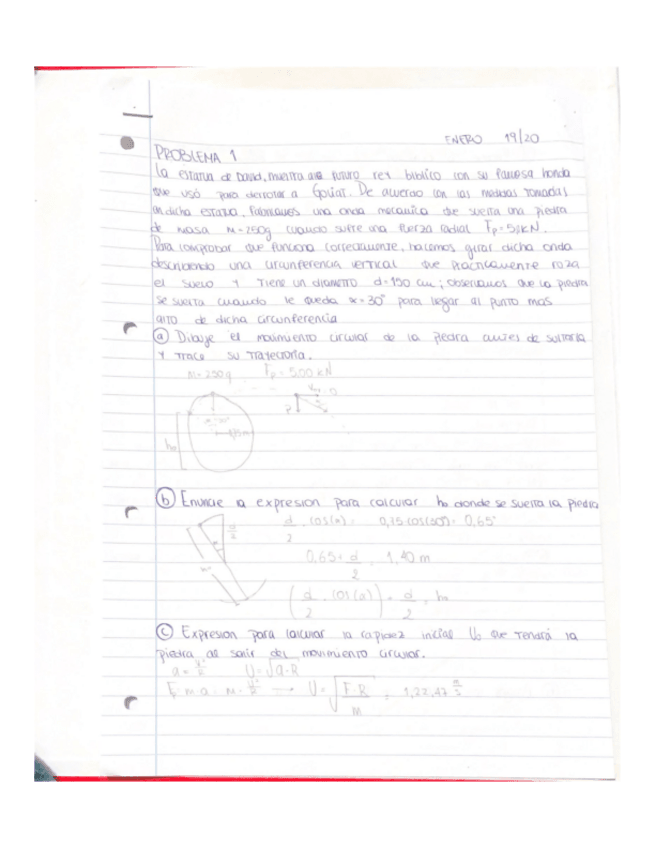 ENERO 19/20
PROBLEMA 1
La estatua de David, muestra al futuro rey bíblico con su famosa honda
que usó para derrotar a Goliat. De acuerdo con las medidas tomadas
en dicha estatua, fabricamos una onda mecanica que suelta una piedra
de masa M=250g cuando sufre una fuerza radial Fp=
Para comprobar que funciona correctamente, hacemos girar dicha onda
describiendo una circunferencia vertical que prácticamente roza
el suelo y tiene un diametro d=150 cm; observamos que la piedra
se suelta cuando le queda α=30° para llegar al punto mas
alto de dicha circunferencia
(a) Dibuje el movimiento circular de la piedra antes de soltarla
y trace su trayectoria.
M=250g Fp=500 kN
(b) Enuncie la expresion para calcular ho donde se suelta la piedra
d/2 · cos(α) = 0,75·cos(30°)= 0,65
0,65+ d/2 = 1,40 m
(d/2 · cos(α)) + d/2 = ho
(c) Expresion para calcular la rapidez inicial Vo que tendrá la
piedra al salir del movimiento circular.
a= v²/R V=√a·R
F=m·a= M·v²/R → V=√F·R/m = 1,22,47 m/s